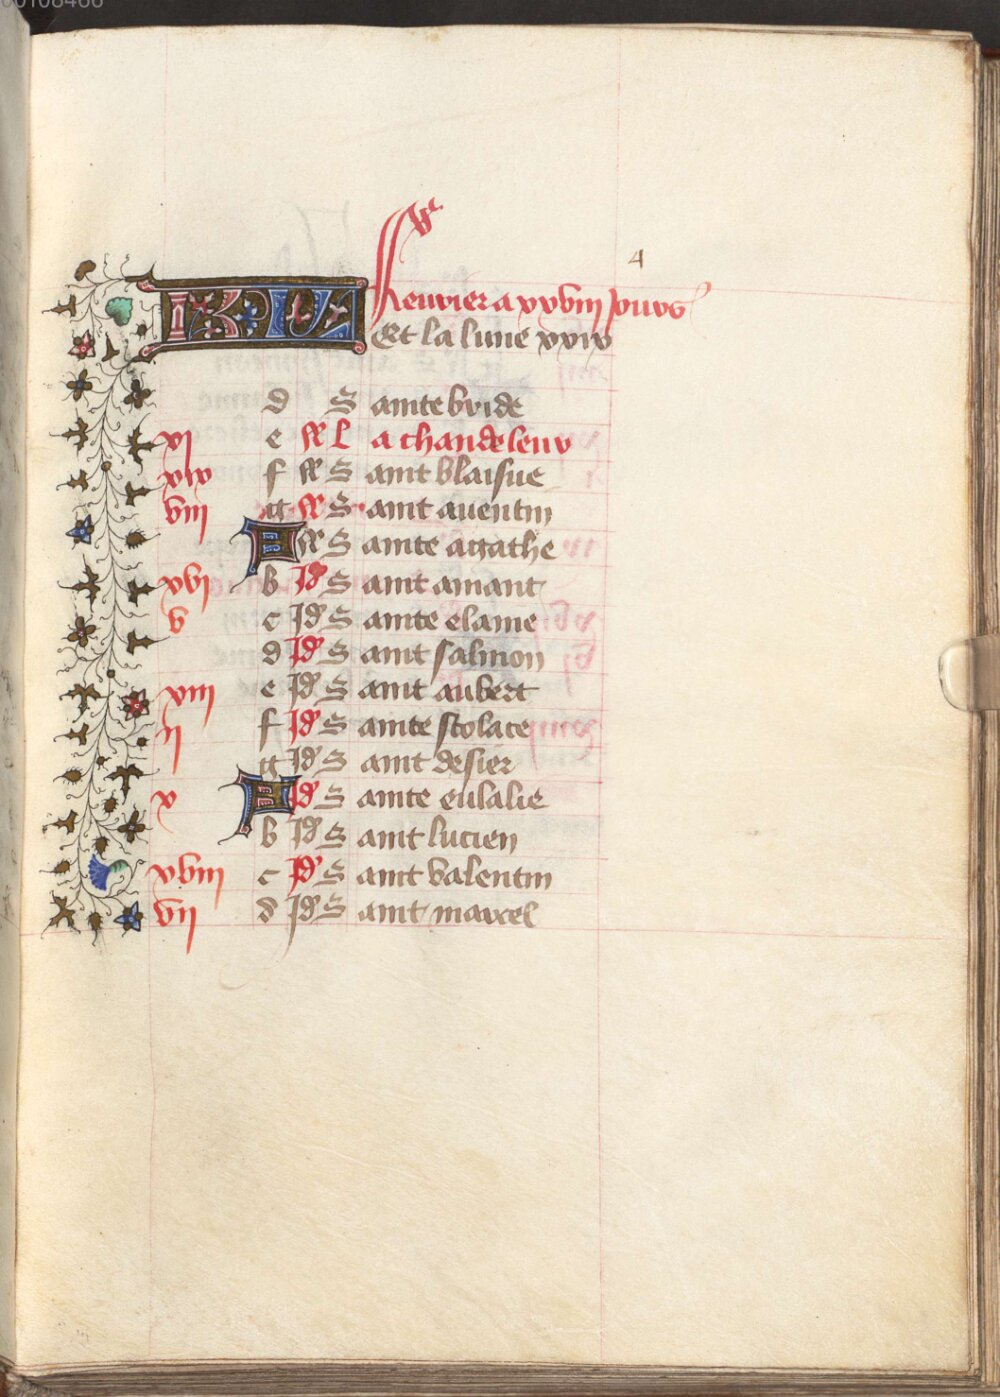 00108466
4
KL Feurier a xxviii Jours
Et la lune xxix
d Sainte bride
vi e N La chandeleur
xix f N Saint blaisue
viii g N Saint auentin
A N Sainte agathe
xvi b Id Saint amant
v c Id Sainte elaine
d Id Saint salmon
xiii e Id Saint aubert
ii f Id Sainte scolace
g Id Saint desier
x A Id Sainte eulalie
b Id Saint lucien
xviii c Id Saint valentin
vii d Id Saint marcel